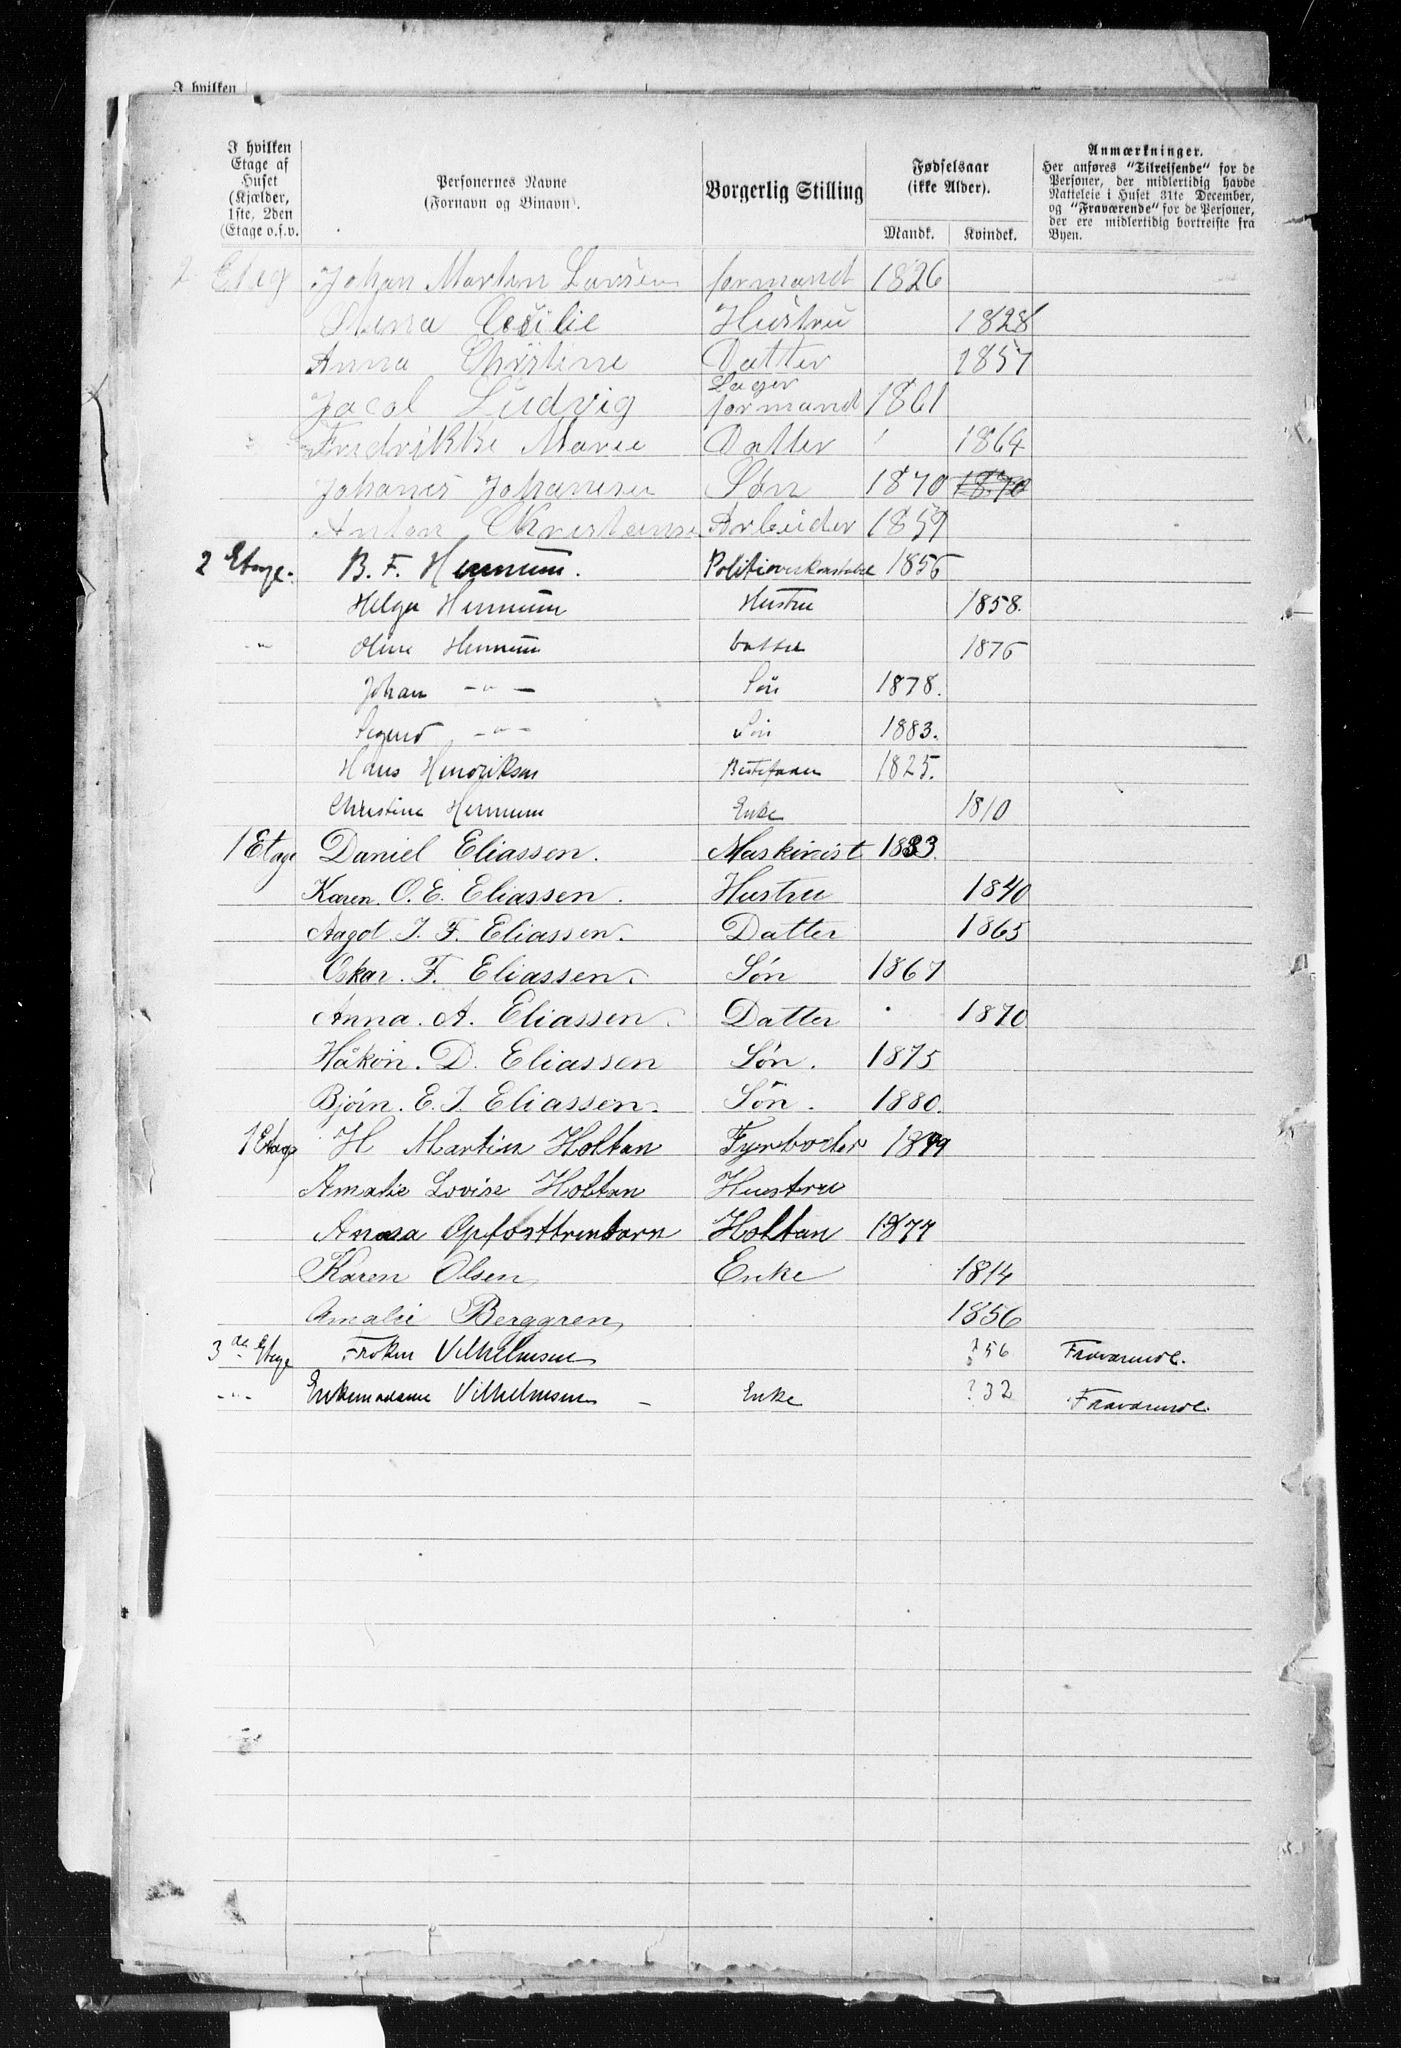 I hvilken
I hvilken Etage af Huset (Kjælder, 1ste, 2den Etage o.s.v.
Personernes Navne (Fornavn og Binavn).
Borgerlig Stilling
Fødselsaar (ikke Alder).
Mandk. Kvindek.
Anmærkninger.
Her anføres "Tilreisende" for de Personer, der midlertidig havde Natteleie i Huset 31te December, og "Fraværende" for de Personer, der ere midlertidig bortreiste fra Byen.
2 Etag Johan Martin Larsen formand 1826
Cesilie Hustru 1828
Anna Christine Datter 1857
Jacob Ludvig Lager formand 1861
Fredrikke Marie Datter 1864
Johanes Johanesen Søn 1870 1870
Anton Christianse Arbeider 1859
2 Etage. B. F. Hennum. Politioverkonstabel 1856
Helga Hennum Hustru 1858.
-"- Oline Hennum Datter 1876
Johan -"- Sön 1878.
Sigurd -"- Sön 1883.
Hans Hendriksen Bestefader 1825.
Christine Hennum Enke 1810
1 Etage Daniel Eliassen. Maskinist 1833.
Karen. O. E. Eliassen. Hustru 1840
Aagot. J. F. Eliassen. Datter 1865
Oskar. F. Eliassen. Søn 1867
Anna. A. Eliassen. Datter 1870
Håkon. D. Eliassen Søn. 1875
Bjørn. E. J. Eliassen. Søn. 1880.
1 Etage H Martin Holtan Fyrbøder
Amalie Lovise Holtan Hustru
Anna Opfosttrenbarn Holtan 1877
Karen Olsen Enke 1814
Amalie Berggren 1856
3de Etage Frøken Vilhelmsen ? 56 Fraværende.
-"- Enkemadame Vilhelmsen - Enke ? 32 Fraværende.